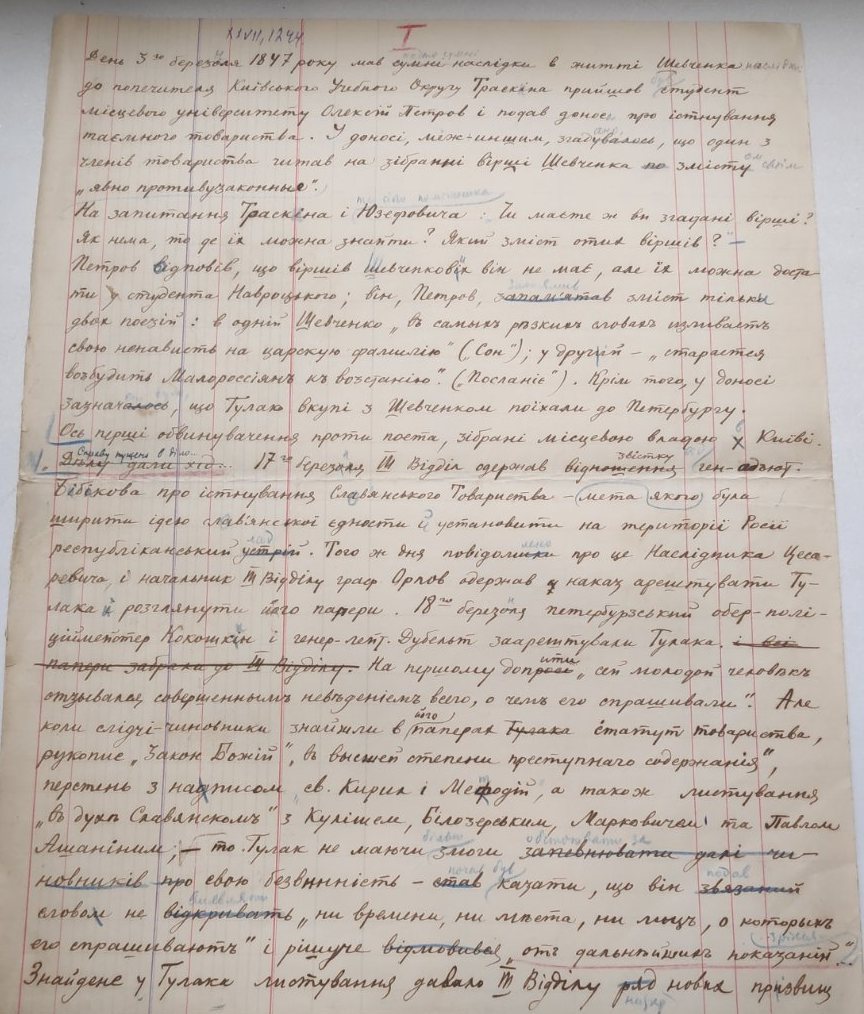 XLVII, 1244
I
День 3го березоля 1847 року мав сумні наслідки в житті Шевченка
до попечителя Київського Учбного Округу Траскіна прийшов студент
місцевого університету Олексій Петров і подав донос про істнування
таємного товариства. У доносі, між-иншим, згадувалось, що один з
членів товариства читав на зібранні вірші Шевченка по змісту своїм
„явно противузаконныя".
На запитання Траскіна і Юзефовича його помічника : Чи маєте ж ви згадані вірші?
Як нема, то де їх можна знайти? Який зміст отих віршів? –
Петров відповів, що віршів Шевченкових він не має, але їх можна доста-
ти у студента Навроцького; він, Петров, запам'ятав зміст тільки
двох поезій: в одній Шевченко „въ самыхъ рѣзкихъ словахъ изливаетъ
свою ненависть на царскую фамилію" („Сон"); у другій – „старается
возбудить Малороссіянъ къ возстанію". („Посланіє"). Крім того, у доносі
зазначалось, що Тулак вкупі з Шевченком поїхали до Петербургу.
Ось перші обвинувачення проти поета, зібрані місцевою владою в Київі.
Справу пущено в діло...
Дѣлу дали ход... 17го березоля III Відділ одержав відношення звістку ген-адъют.
Бібікова про істнування Славянського Товариства – мета якого була
ширити ідею слав'янської єдности й установити на території Росії
республіканський устрій лад. Того ж дня повідомили про це Наслідника Цеса-
ревича, і начальник III Відділу граф Орлов одержав наказ арештувати Ту-
лака й розглянути його папери. 18го березоля петербурзський обер-полі-
ціймейстер Кокошкін і генер-лейт. Дубельт заарештували Тулака. і всі
папери забрали до III Відділу. На першому допросі „сей молодой человѣкъ
отзывался совершеннымъ невѣденіемъ всего, о чемъ его спрашивали". Але
коли слідчі-чиновники знайшли в його паперах Тулака статут товариства,
рукопис „Закон Божій", „въ высшей степени преступнаго содержанія",
перстень з надписом „св. Кирил і Мефодій", а також листування
„въ духѣ Славянскомъ" з Кулішем, Білозерським, Марковичем та Павлом
Ашаніним, – то Тулак не маючи більш змоги запевнювати далі чи-
новників про свою безвинність – став почав був казати, що він звязаний
словом не відкривать „ни времени, ни мѣста, ни лицъ, о которыхъ
его спрашиваютъ" і рішуче відмовився „отъ дальнѣйшихъ показаній".
Знайдене у Тулака листування давало III Відділу ряд нових призвищ